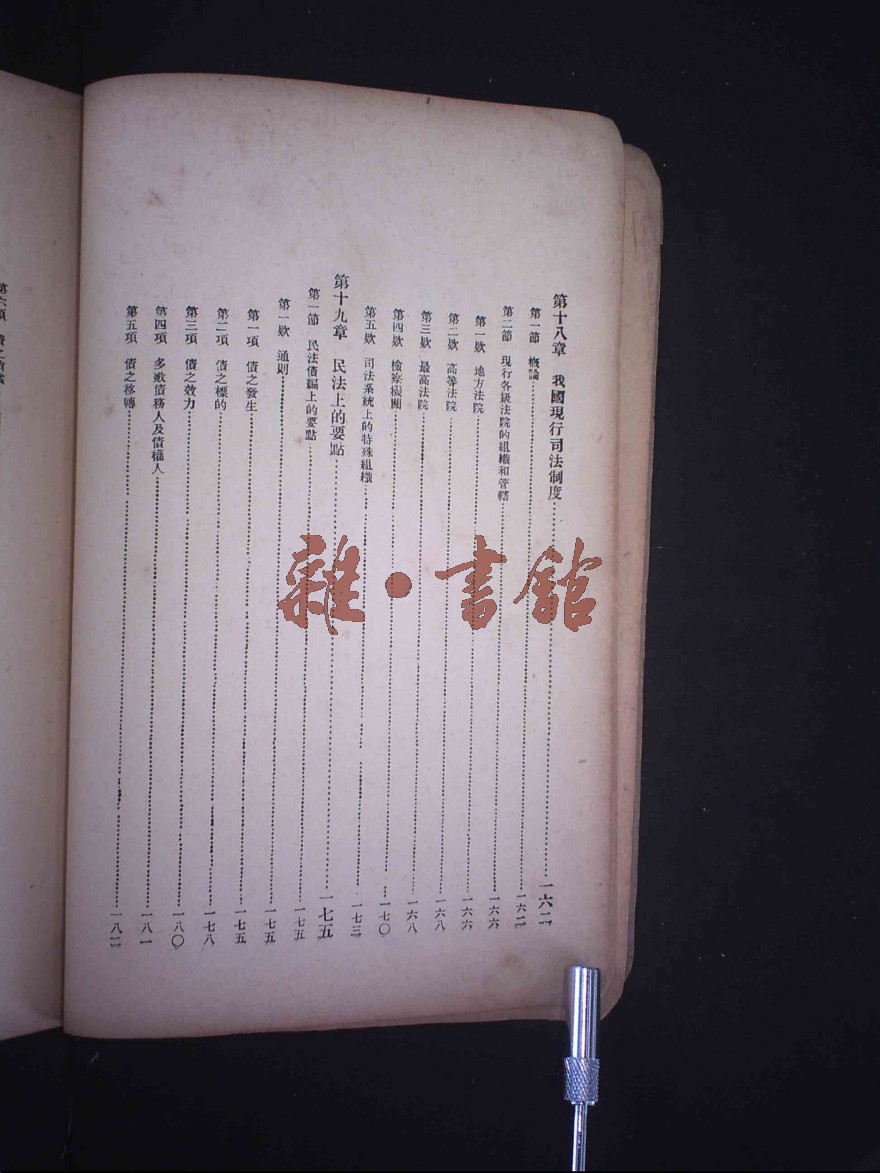 第十八章 我國現行司法制度……一六二
第一節 概論……一六二
第二節 現行各級法院的組織和管轄……一六六
第一欵 地方法院……一六六
第二欵 高等法院……一六八
第三欵 最高法院……一六八
第四欵 檢察機關……一七〇
第五欵 司法系統上的特殊組織……一七三
第十九章 民法上的要點……一七五
第一節 民法債編上的要點……一七五
第一欵 通則……一七五
第一項 債之發生……一七五
第二項 債之標的……一七八
第三項 債之效力……一八〇
第四項 多數債務人及債權人……一八一
第五項 債之移轉……一八二
第六項 債之
雜·書館